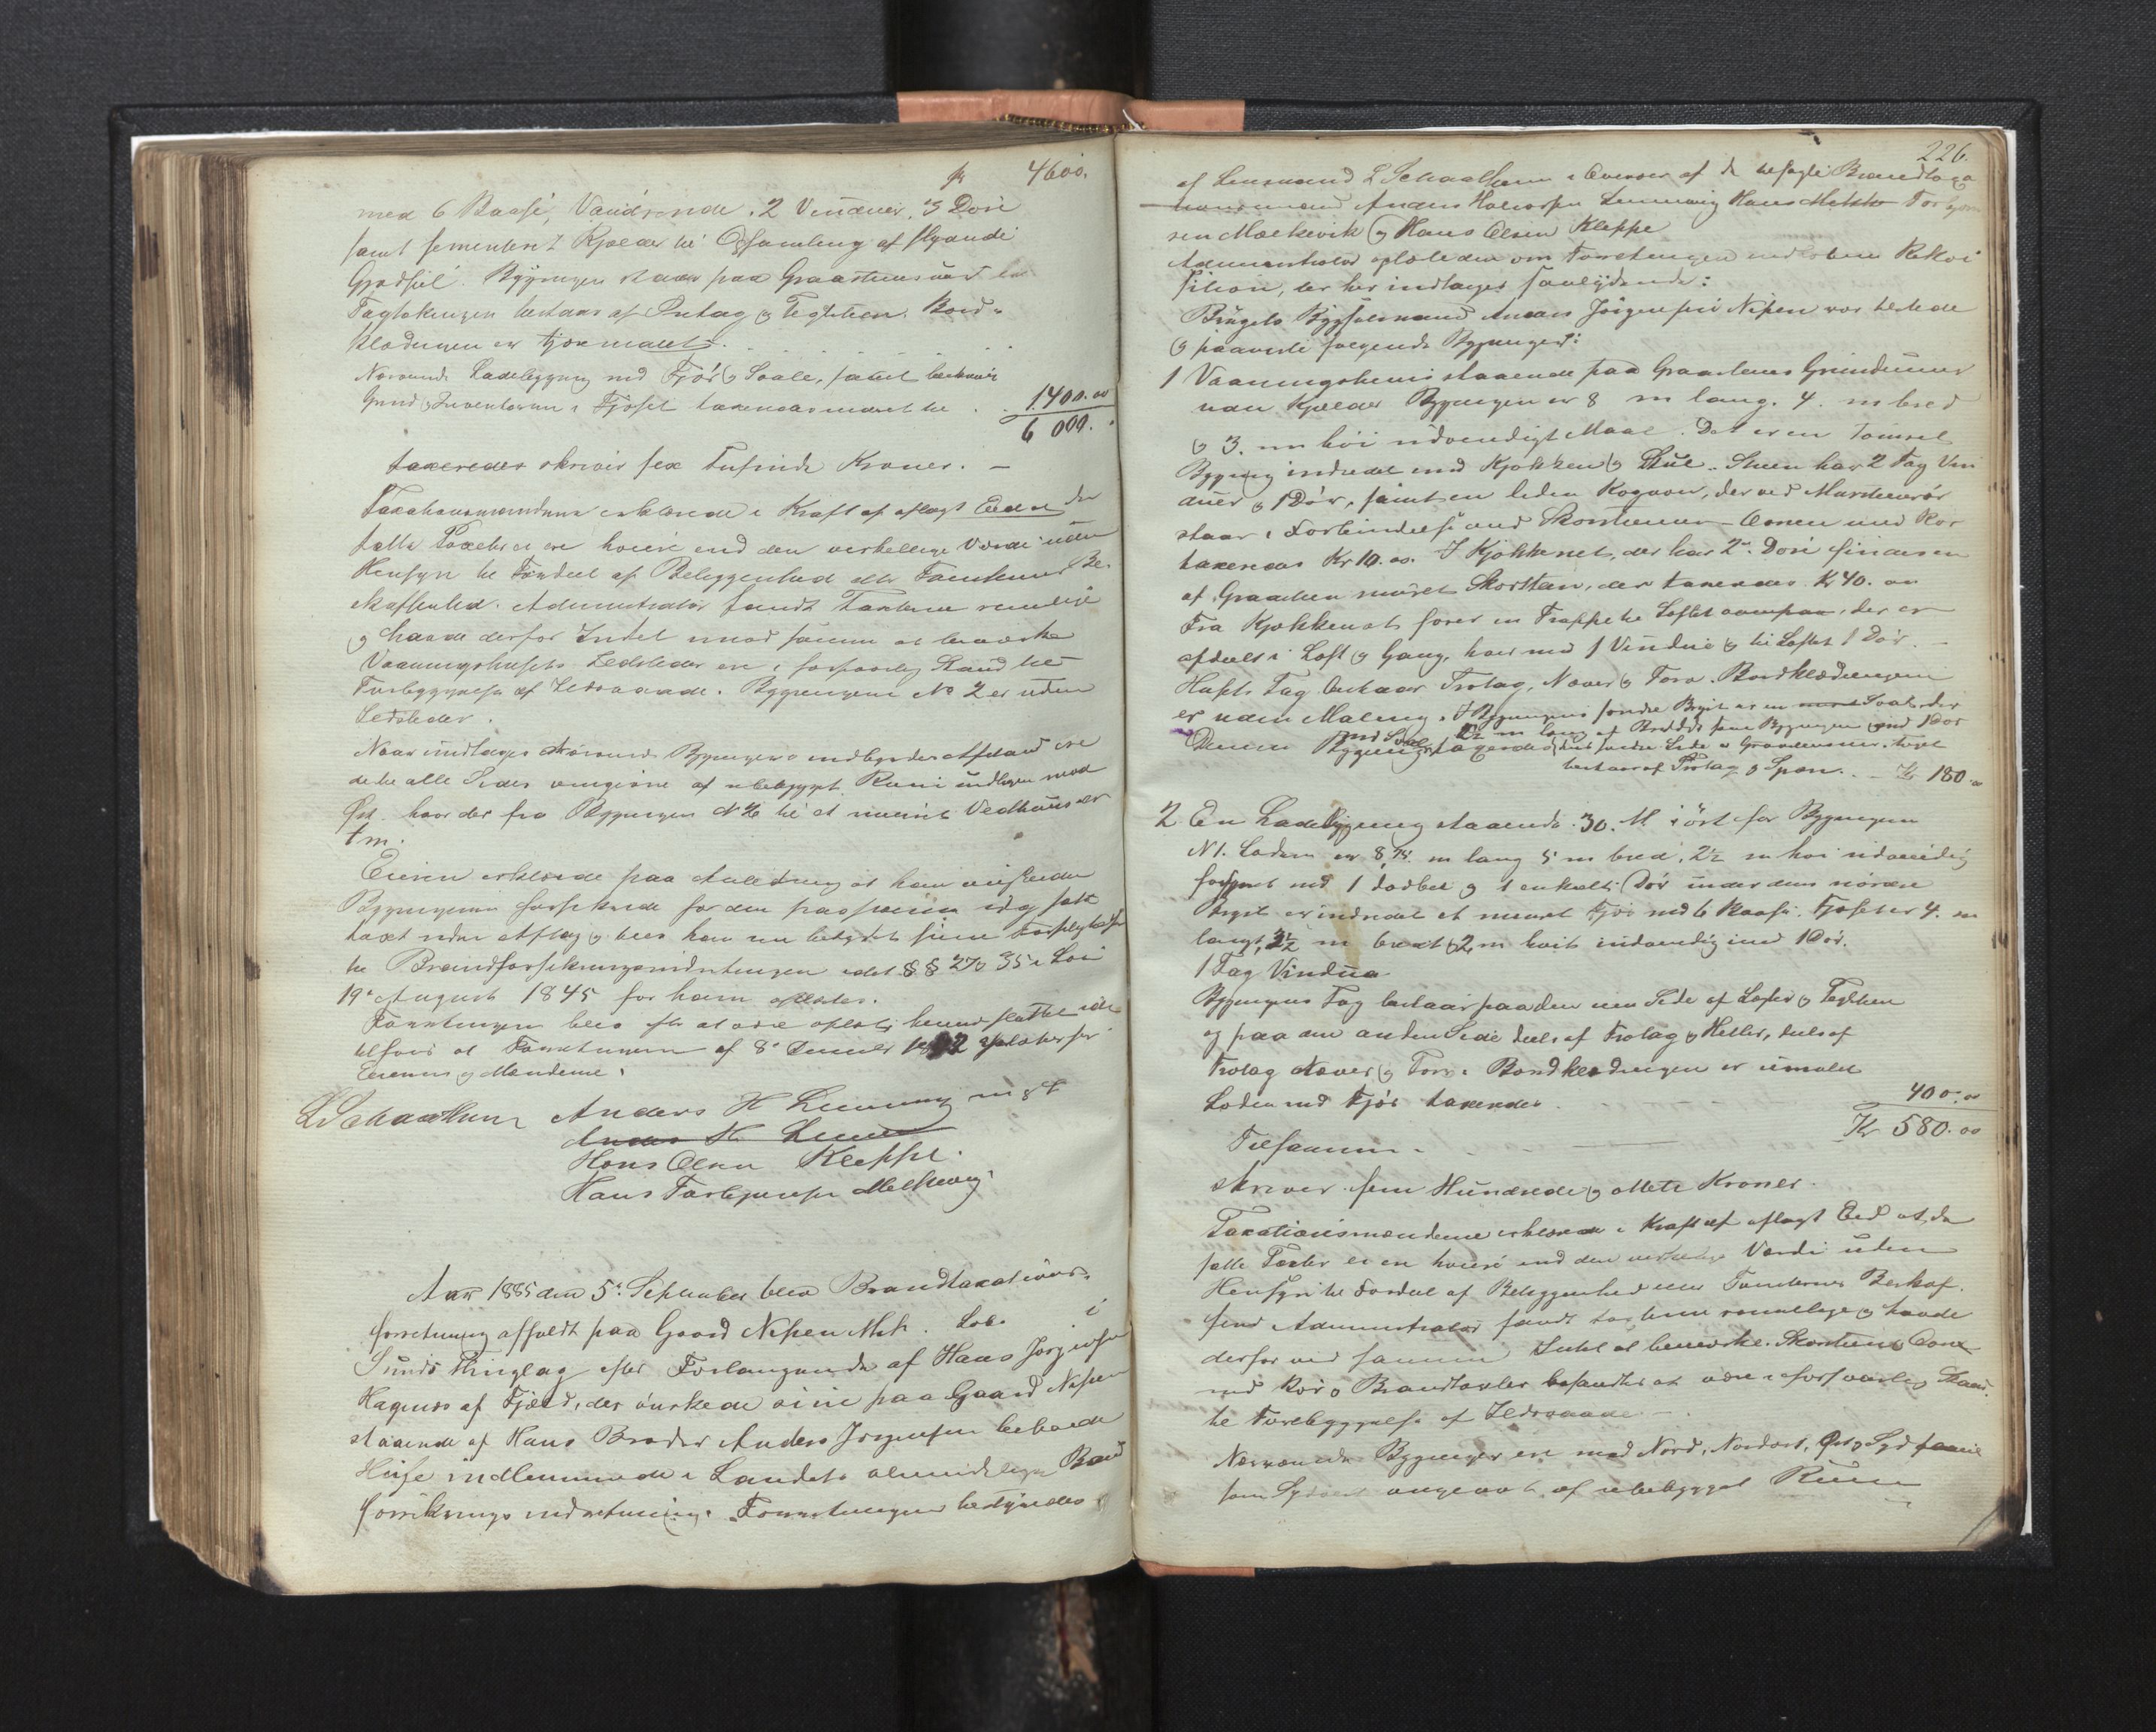 fr 4600.
med 6 Baase, Vandrende, 2 Vinduer, 3 Døre
samt sementeret Kjælder til Opsamling af flydende
Gjødsel. Bygningen staar paa Graasteens
Tagtækningen bestaar af Trotag og Teglsteen. Bord-
klædningen er tjæremalet.
Nærværende Ladebygning med Fjøs og Svale, samt
Grund og Inventarium i Fjøset taxeredes til 1400.00
6 000.
taxeredes skriver sex Tusinde Kroner. —
Taxationsmændene erklærede i Kraft af aflagt Eed at den
satte Taxter ei er høiere end den virkelige Værdi uden
Hensyn til Fordeel af Beliggenhed eller Tomternes Be-
skaffenhed. Administrator fandt Taxterne rimelige
og havde derfor Intet imod samme at bemærke
Vaaningshusets Ildsteder ere i forsvarlig Stand til
Forebyggelse af Ildsvaade. Bygningen No 2 er uden
Ildsteder.
Naar undtages Nærværende Bygningers indbyrdes Afstand ere
de til alle Sider omgivne af ubebygget Rum undtagen mod
Øst hvor der fra Bygningen No 2 til et muret Vedhuus er
7 m.
Eieren erklærede paa Anledning at han ønskede
Bygningerne forsikrede for den paa samme idag satte
Taxt uden Afslag og blev han nu betydet sine Forpligtelser
til Brandforsikringsindretningen idet §§ 27 og 35 i Lov
19de August 1845 for ham oplæstes.
Forretningen blev efter at være oplæst hermed sluttet idet
tilføies at Forretningen af 8de 18 2 oplæstes for
Eieren og Mændene.
L Schaathun Anders H Lenning m. p. P.
Anders H. Lenn
Hans Olsen Kleppe.
Hans Torbjørnsen Melkevig
Aar 1885 den 5te September blev Brandtaxations-
forretning afholdt paa Gaard Nipen Mat. Lob. i
Sunds Thinglag efter Forlangende af Hans Jørgensen
Hagenes af Fjæld, der ønskede sine paa Gaard Nipen
staaende af Hans Broder Anders Jørgensen beboede
Huse indlemmede i Landets almindelige Brand
forsikrings indretning. Forretningen bestyredes
226.
af Lensmand L Schaathun i Overvær af de befalede Brandtaxa
tionsmænd Anders Halvorsen Lenning Hans Melkev Torbjørn
sen Melkevik og Hans Olsen Kleppe
Administrator oplæste den om Forretningen indløbne Rekvi
sition, der her indtages saalydende:
Brugets Bygselsmand Anders Jørgensen Nipen var tilstede
og paaviste følgende Bygninger:
1 Vaaningshuus staaende paa Graasteens Grundmuur
uden Kjælder Bygningen er 8 m lang. 4. m bred
og 3. m høi udvendigt Maal. Det er en tømret
Bygning indredet med Kjøkken og Stue. Stuen har 2 Fag Vin
duer og 1 Dør, samt en liden Kogeovn, der ved Muursteensrør
staar i Forbindelse med Skorstenen — Ovnen med Rør
taxeredes Kr 10.00. I Kjøkkenet, der har 2de Døre findes en
af Graasteen muret Skorsten, der taxeredes Kr 40.00
Fra Kjøkkenet fører en Trappe til Loftet ovenpaa, der er
afdeelt i Loft og Gang, har med 1 Vindue og til Loftet 1 Dør. —
Husets Tag bestaar Trotag, Næver og Torv. Bordklædningen
er uden Maling. I Bygningens søndre Bryst er en Sval, der
er m lang af Bredde som Bygningen med 1 Dør
Denne Bygning med Sval taxeredes søndre Side er Graasteensmur. Taget
bestaar af Trotag og Spon. — Kr 180.00
2 En Ladebygning staaende 30. M. i øst for Bygningen
N 1. Laden er 8,75. m lang 5 m bred, 2½ m høi udvendig
forsynet med 1 dobbel og 1 enkelt Dør under dens nordre
Bryst er indredet et muret Fjøs med 6 Baase. Fjøset er 4. m
langt, 3½ m bredt og 2 m høit indvendig med 1 Dør.
1 Fag Vindue
Bygningens Tag bestaar paa den ene Side af Lægter og Teglsten
og paa den anden Side deels af Trotag og Heller, deels af
Trotag Næver og Torv. Bordklædningen er umalet
Laden med Fjøs taxeredes 400.00
Tilsammen Kr 580.00
skriver fem Hundrede og ottete Kroner.
Taxationsmændene erklærede i Kraft af aflagt Eed at de
satte Taxter ei er høiere end den virkelige Værdi uden
Hensyn til Fordeel af Beliggenhed eller Tomternes Beskaf-
fenhed Administrator fandt taxterne rimelige og havde
derfor ved samme Intet at bemærke. Skorstene Ovne
med Rør og Brandtavler befandtes at være i forsvarlig Stand
til Forebyggelse af Ildsvaade —
Nærværende Bygninger ere mod Nord, Nordost, Øst og Syd samt
som Sydvest omgivet af ubebygget Rum